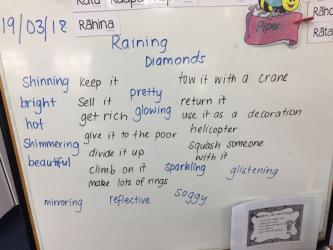 19/03/18
Rāhina
Piper
Raining
Diamonds
Shinning keep it tow it with a crane
bright Sell it pretty return it
hot get rich glowing use it as a decoration
helicopter
Shimmering give it to the poor Squash someone
beautiful divide it up with it
climb on it sparkling glistening
make lots of rings
mirroring reflective soggy